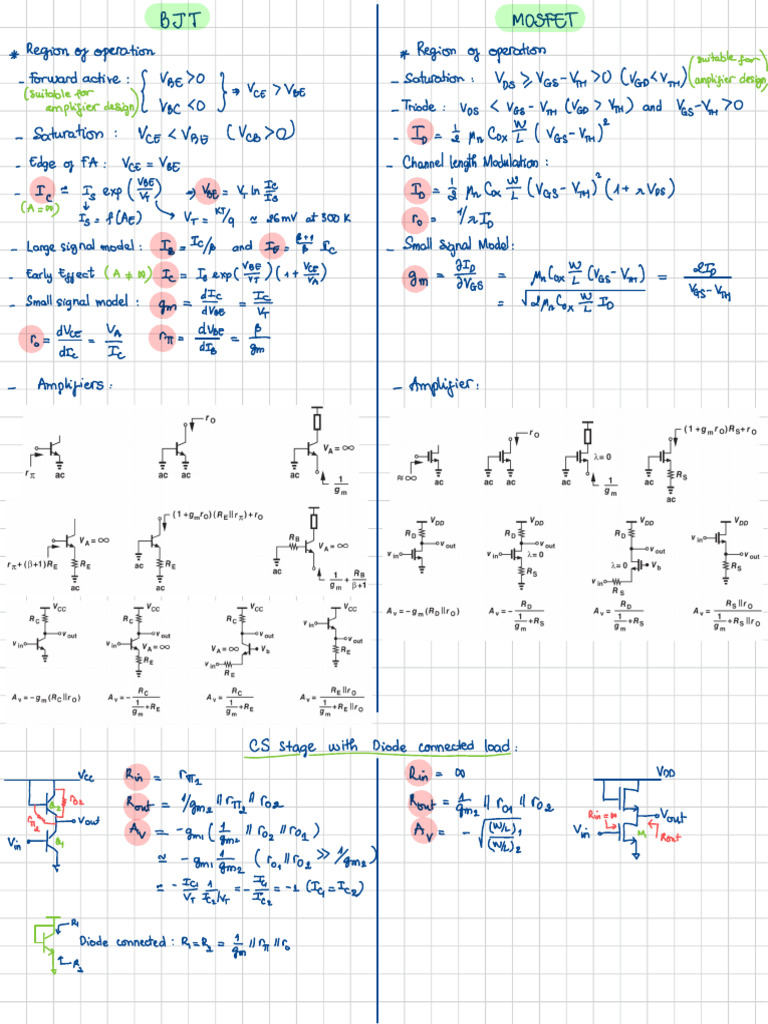 BJT
* Region of operation
- Forward active : { V_BE > 0 ⇒ V_CE > V_BE
(suitable for amplifier design) V_BC < 0
- Saturation : V_CE < V_BE ( V_CB > 0 )
- Edge of FA : V_CE = V_BE
- I_C ≃ I_S exp ( V_BE / V_T ) ⇒ V_BE = V_T ln I_C / I_S
(A = ∞) I_S = f(A_E) V_T = KT/q ≃ 26 mV at 300 K
- Large signal model : I_B = I_C/β and I_E = β+1 / β I_C
- Early Effect (A ≠ ∞) I_C = I_S exp( V_BE / V_T )( 1 + V_CE / V_A )
- Small signal model : g_m = dI_C / dV_BE = I_C / V_T
r_o = dV_CE / dI_C = V_A / I_C r_π = dV_BE / dI_B = β / g_m
- Amplifiers :
r_π ac
r_O ac ac
V_A = ∞ ac 1 / g_m
r_π + (β+1)R_E V_A = ∞ R_E
(1 + g_m r_O)(R_E || r_π) + r_O ac R_E
R_B V_A = ∞ ac 1 / g_m + R_B / β+1
V_CC R_C v_in v_out
V_CC R_C v_out v_in V_A = ∞ R_E
V_CC R_C v_out V_A = ∞ V_b v_in R_E
V_CC v_in v_out R_E
A_v = −g_m (R_C || r_O)
A_v = − R_C / 1/g_m + R_E
A_v = R_C / 1/g_m + R_E
A_v = R_E || r_O / 1/g_m + R_E || r_O
MOSFET
* Region of operation
- Saturation : V_DS ⩾ V_GS − V_TH > 0 (V_GD < V_TH) (suitable for amplifier design)
- Triode : V_DS < V_GS − V_TH (V_GD > V_TH) and V_GS − V_TH > 0
- I_D = 1/2 μ_n C_ox W/L ( V_GS − V_TH )²
- Channel length Modulation :
I_D = 1/2 μ_n C_ox W/L ( V_GS − V_TH )² ( 1 + λ V_DS )
r_o = 1/λ I_D
- Small Signal Model :
g_m = ∂I_D / ∂V_GS = μ_n C_ox W/L (V_GS − V_TH) = 2I_D / V_GS − V_TH
= √ 2 μ_n C_ox W/L I_D
- Amplifier :
≈ ∞ ac
r_O ac ac
λ = 0 ac 1 / g_m
(1 + g_m r_O)R_S + r_O R_S ac
V_DD R_D v_out v_in
V_DD R_D v_out v_in λ = 0 R_S
V_DD R_D v_out λ = 0 V_b v_in R_S
V_DD v_in v_out R_S
A_v = −g_m (R_D || r_O)
A_v = − R_D / 1/g_m + R_S
A_v = R_D / 1/g_m + R_S
A_v = R_S || r_O / 1/g_m + R_S || r_O
CS stage with Diode connected load :
V_CC Q_2 r_O2 r_π2 V_out V_in Q_1
R_in = r_π2
R_out = 1/g_m2 // r_π2 // r_O2
A_V = −g_m1 ( 1 / g_m2 // r_O2 // r_O1 )
≃ − g_m1 1 / g_m2 ( r_O1 // r_O2 ≫ 1/g_m2 )
≃ − I_C1 / V_T 1 / I_C2/V_T = − I_C1 / I_C2 = −1 ( I_C1 = I_C2 )
R_1 R_2
Diode connected : R_1 = R_2 = 1 / g_m // r_π // r_o
R_in = ∞
R_out = 1 / g_m2 // r_O1 // r_O2
A_V = − √ (W/L)_1 / (W/L)_2
VDD R_in = ∞ V_out V_in M_1 R_out